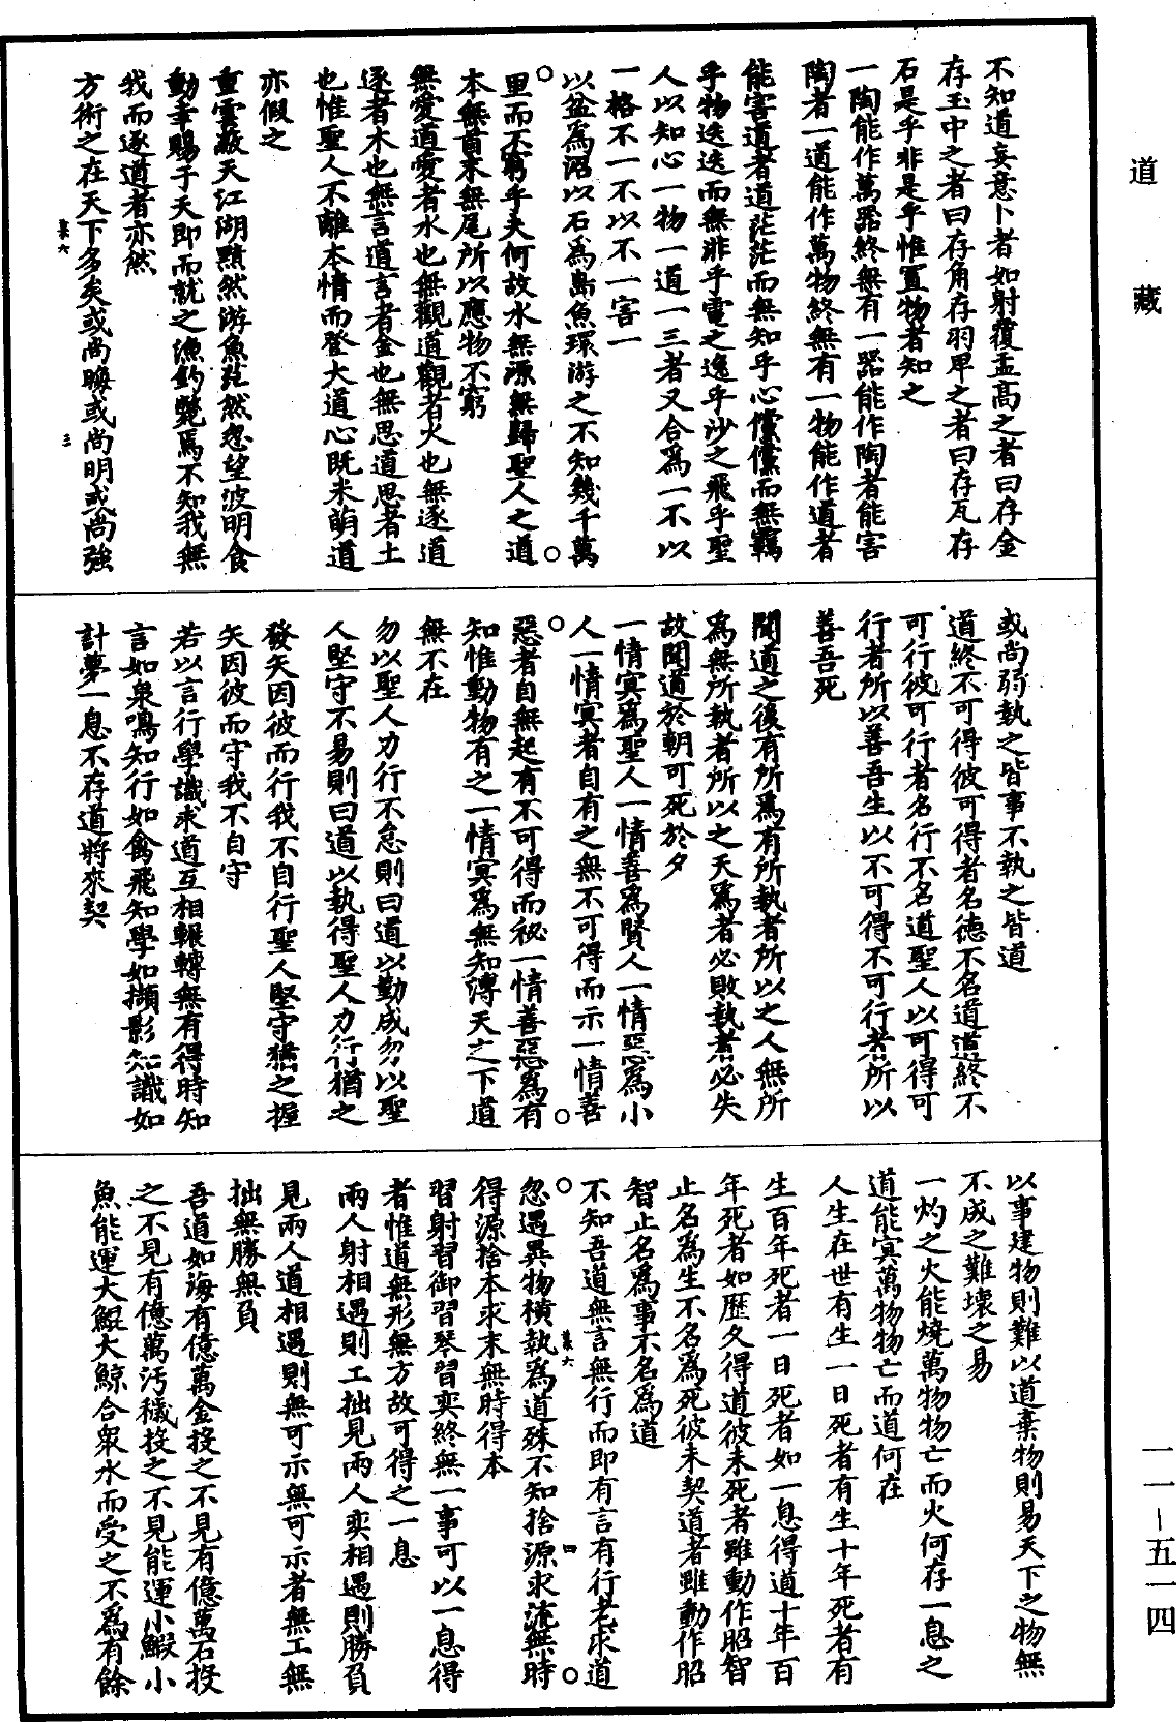 道藏
不知道妄意卜者如射覆盂高之者曰存金
存玉中之者曰存角存羽卑之者曰存瓦存
石是乎非是乎惟置物者知之
一陶能作萬器終無有一器能作陶者能害
陶者一道能作萬物終無有一物能作道者
能害道者道茫茫而無知乎心儻儻而無羈
乎物迭迭而無非乎電之逸乎沙之飛乎聖
人以知心一物一道一三者又合爲一不以
一格不一不以不一害一
以盆爲沼以石爲島魚環游之不知幾千萬
里而不窮乎夫何故水無源無歸聖人之道
本無首末無尾所以應物不窮
無愛道愛者水也無觀道觀者火也無逐道
逐者木也無言道言者金也無思道思者土
也惟聖人不離本情而登大道心既未萌道
亦假之
重雲蔽天江湖黯然游魚茫然忽望波明食
動幸賜于天即而就之漁釣斃焉不知我無
我而逐道者亦然
方術之在天下多矣或尚晦或尚明或尚強
茶六 三
或尚弱執之皆事不執之皆道
道終不可得彼可得者名德不名道道終不
可行彼可行者名行不名道聖人以可得可
行者所以善吾生以不可得不可行者所以
善吾死
聞道之後有所爲有所執者所以之人無所
爲無所執者所以之天爲者必敗執者必失
故聞道於朝可死於夕
一情冥爲聖人一情善爲賢人一情惡爲小
人一情冥者自有之無不可得而示一情善
惡者自無起有不可得而祕一情善惡爲有
知惟動物有之一情冥爲無知溥天之下道
無不在
勿以聖人力行不怠則曰道以勤成勿以聖
人堅守不易則曰道以執得聖人力行猶之
發矢因彼而行我不自行聖人堅守猶之握
矢因彼而守我不自守
若以言行學識求道互相輾轉無有得時知
言如泉鳴知行如禽飛知學如擷影知識如
計夢一息不存道將來契
以事建物則難以道棄物則易天下之物無
不成之難壞之易
一灼之火能燒萬物物亡而火何存一息之
道能冥萬物物亡而道何在
人生在世有生一日死者有生十年死者有
生百年死者一日死者如一息得道十年百
年死者如歷久得道彼未死者雖動作昭智
止名爲生不名爲死彼未契道者雖動作昭
智止名爲事不名爲道
不知吾道無言無行而即有言有行者求道
茶六 四
忽遇異物橫執爲道殊不知捨源求流無時
得源捨本求末無時得本
習射習御習琴習奕終無一事可以一息得
者惟道無形無方故可得之一息
兩人射相遇則工拙見兩人奕相遇則勝負
見兩人道相遇則無可示無可示者無工無
拙無勝無負
吾道如海有億萬金投之不見有億萬石投
之不見有億萬汚穢投之不見能運小鰕小
魚能運大鯤大鯨合衆水而受之不爲有餘
一一－五一四